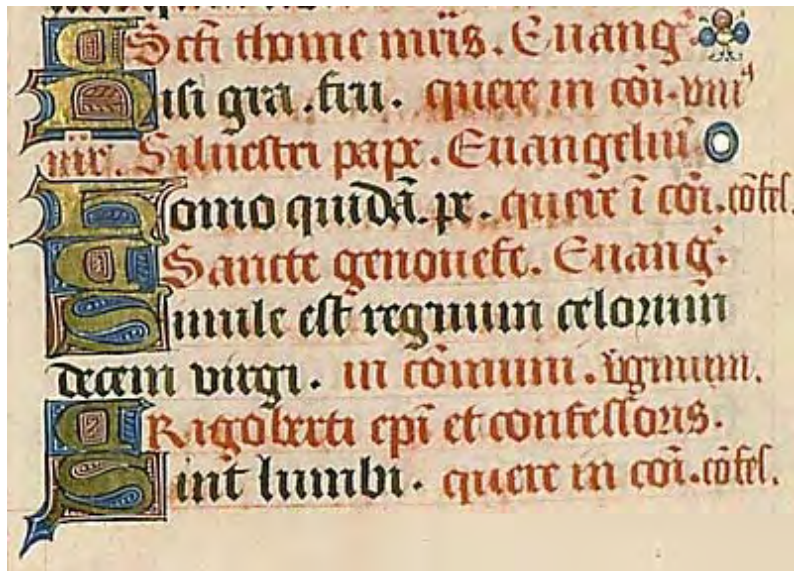 Scti thome mris. Euang
Nisi gra. fru. quere in cōi. vniꝰ
mr. Siluestri pape. Euangeliū
Homo quidā. pe. quere ī cōi. cōfes.
Sancte genouefe. Euang.
Simile est regnum celorum
decem virgi. in cōmuni. virginum.
Rigoberti epī et confessoris.
Sint lumbi. quere in cōi. cōfes.